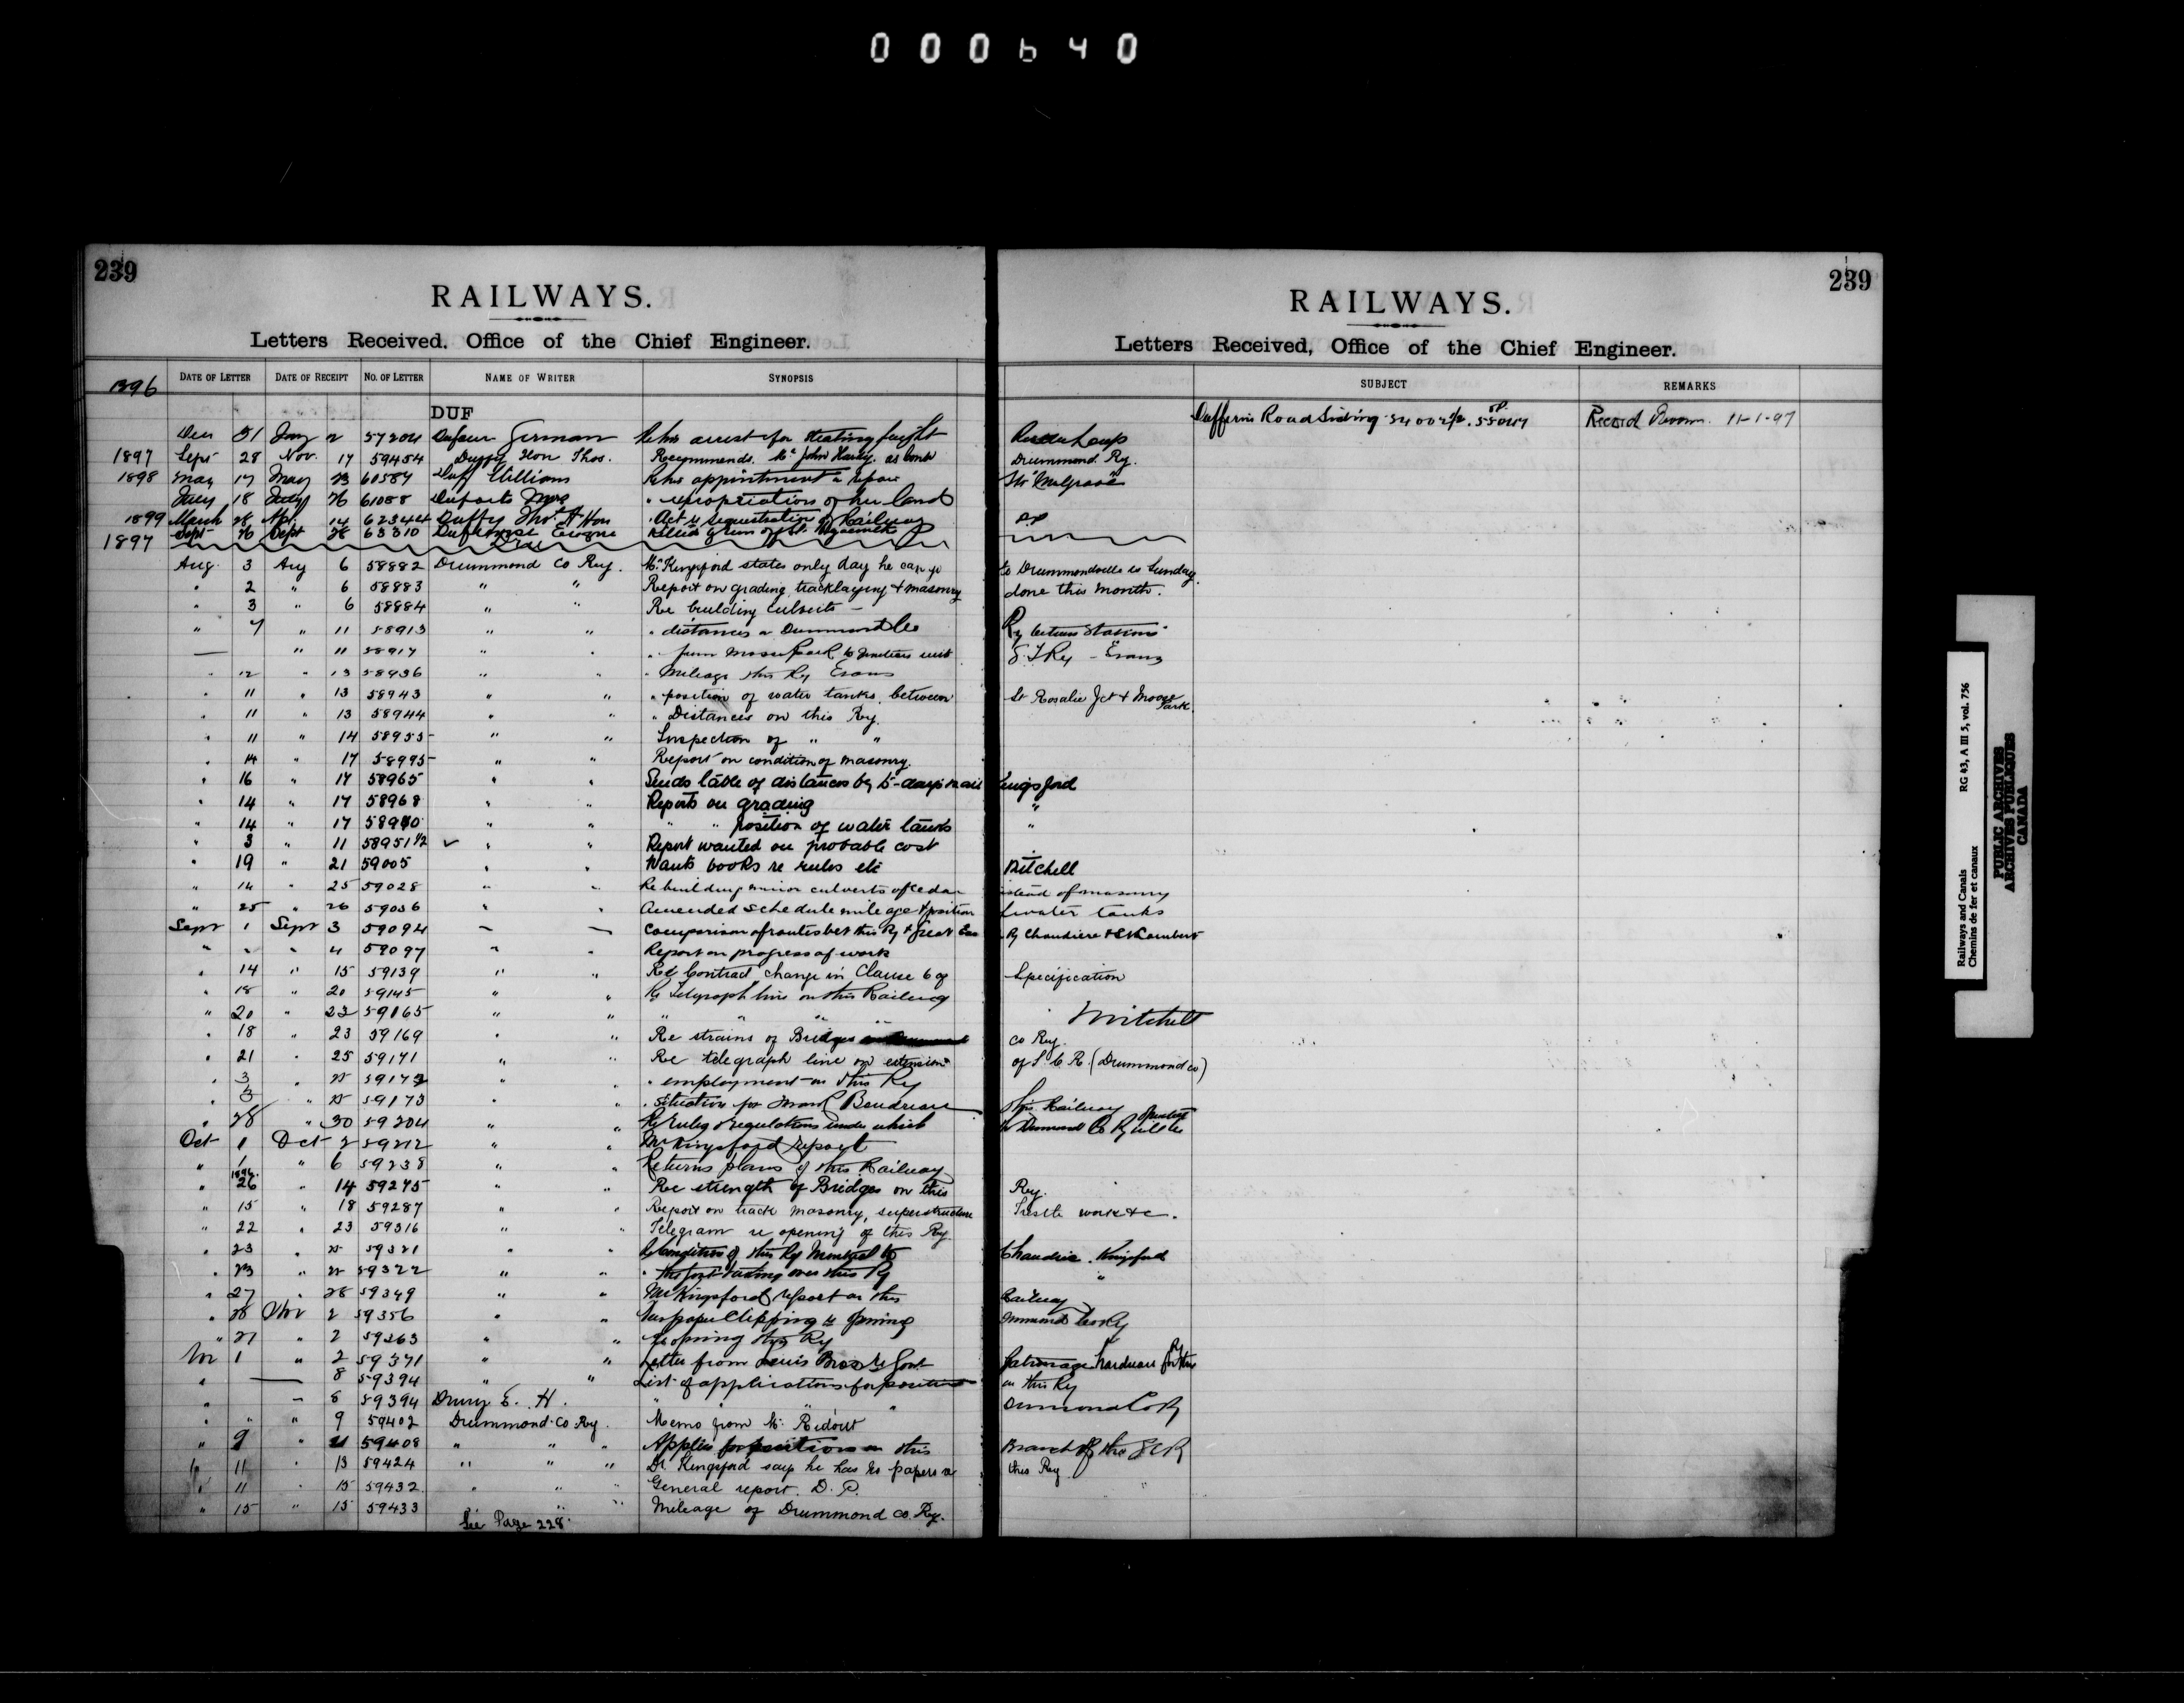 000640
239
RAILWAYS.
Letters Received, Office of the Chief Engineer.
1896 DATE OF LETTER DATE OF RECEIPT NO. OF LETTER NAME OF WRITER SYNOPSIS
DUF
Dec 31 Jany 2 57204 Dufour German Re his arrest for stealing freight
1897 Sept 28 Nov. 17 59454 Duffy Hon Thos. Recommends Mr John Hardy as
1898 May 17 May 23 60587 Duff William Re his appointment
July 18 July 26 61088 Duports Mrs " expropriation of her land
1899 March 28 Apl. 14 62344 Duffy Thos. A Hon " Act re sequestration of Railway
Sept 26 Sept 28 63310
1897 Dru
Aug. 3 Aug 6 58882 Drummond Co Ry. Mr Kingsford states only day he can go
" 2 " 6 58883 " " Report on grading, tracklaying & masonry
" 3 " 6 58884 " " Re building culverts —
" 7 " 11 58913 " " " distances on Drummond Co
— " 11 58917 " " " from Moose Park to junction with
" 12 " 13 58936 " " " Mileage this Ry Evans
" 11 " 13 58943 " " " position of water tanks between
" 11 " 13 58944 " " " Distances on this Ry.
" 11 " 14 58955 " " Inspection of " "
" 14 " 17 58995 " " Report on condition of masonry.
" 16 " 17 58965 " " Sends table of distances by to-day's mail
" 14 " 17 58968 " " Reports on grading
" 14 " 17 58970 " " " " position of water tanks
" 3 " 11 58951 1/2 " " Report wanted on probable cost
" 19 " 21 59005 " " Wants books re rules etc
" 14 " 25 59028 " " Re building minor culverts of cedar
" 25 " 26 59036 " " Amended schedule mileage & position
Sept 1 Sept 3 59094 — — Comparison of routes bet this Ry & Great Eas
" " " 4 59097 " " Report on progress of work
" 14 " 15 59139 " " Re Contract change in Clause 6 of
" 18 " 20 59145 " " Re Telegraph line on this Railway
" 20 " 22 59165 " " " " "
" 18 " 23 59169 " " Re strains of Bridges
" 21 " 25 59171 " " Re telegraph line on extension
" 3 " 25 59172 " " " employment on this Ry
" 3 " 25 59173 " " " situation for Beaudreau
" 28 " 30 59204 " " Re rules & regulations under which
Oct 1 Oct 2 59212 " " Mr Kingsford report
" 1 " 6 59238 " " Returns plans of this Railway
" 1896. 26 " 14 59275 " " Re strength of Bridges on this
" 15 " 18 59287 " " Report on track masonry, superstructure
" 22 " 23 59316 " " Telegram re opening of this Ry.
" 23 " 25 59321 " " Re Condition of this Ry Montreal to
" 23 " 25 59322 " " " the Govt taking over this Ry
" 27 " 28 59349 " " Mr Kingsford report on this
" 28 Nov 2 59356 " " Newspaper Clipping re opening
" 27 " 2 59363 " " Re opening this Ry
Nov 1 " 2 59371 " " Letter from Lewis Bros re Govt
" — 8 59394 " " List of applications for position
" — 8 59394 Drury E. H. " " "
" " " 9 59402 Drummond Co Ry. Memo from Mr Ridout
" 9 " 11 59408 " " " Applies for position on this
" 11 " 13 59424 " " " Dr. Kingsford says he has no papers re
" 11 " 15 59432 " " " General report. D. P.
" 15 " 15 59433 " " Mileage of Drummond Co. Ry.
See Page 228.
239
RAILWAYS.
Letters Received, Office of the Chief Engineer.
SUBJECT REMARKS
Dufferin Road Siding Record Room 11-1-97
Drummond Ry.
to Drummondville is Sunday.
done this month.
Ry between Stations
G T Ry – Evans
St Rosalie Jct & Moose Park.
Kingsford
"
"
Mitchell
instead of masonry
of water tanks
Ry Chaudiere & St Lambert
Specification
Mitchell
Co Ry.
of I. C. R. (Drummond Co)
this Railway
Ry.
Trestle work &c.
Chaudiere. Kingsford
"
Railway
Drummond Co Ry
patronage hardware for this Ry
on this Ry
Drummond Co Ry
Branch of the I C R
this Ry
Railways and Canals RG 43, A III 5, vol. 756
Chemins de fer et canaux
PUBLIC ARCHIVES
ARCHIVES PUBLIQUES
CANADA